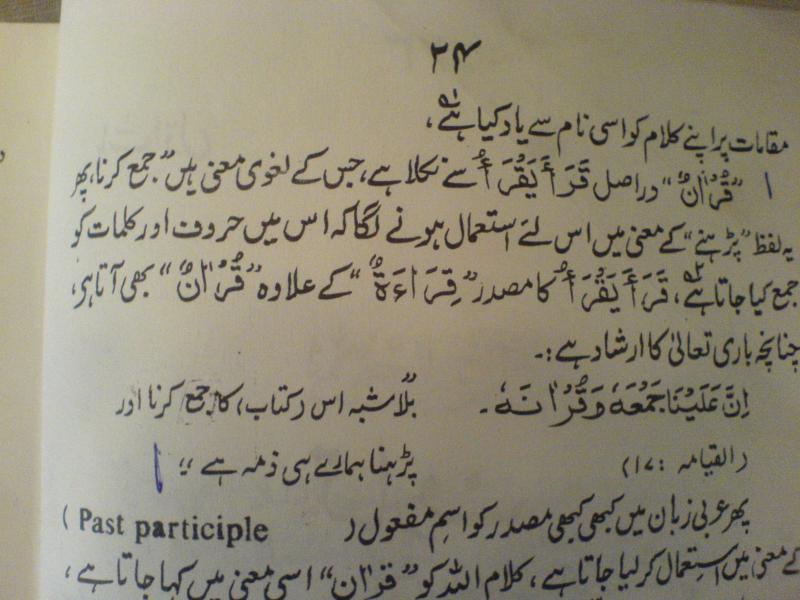 ۲۴
مقامات پر اپنے کلام کو اسی نام سے یاد کیا ہے۱،
۱ "قُرْاٰنٌ" دراصل قَرَأَ یَقْرَأُ سے نکلا ہے، جس کے لغوی معنی ہیں "جمع کرنا، پھر
یہ لفظ "پڑہنے" کے معنی میں اس لئے استعمال ہونے لگا کہ اس میں حروف اور کلمات کو
جمع کیا جاتا ہے۲، قَرَأَ یَقْرَأُ کا مصدر "قِرَاءَةٌ" کے علاوہ "قُرْاٰنٌ" بھی آتا ہی،
چنانچہ باری تعالیٰ کا ارشاد ہے :۔
اِنَّ عَلَیْنَا جَمْعَهٗ وَقُرْاٰنَهٗ ۔ "بلاشبہ اس (کتاب) کا جمع کرنا اور
(القیامہ :۱۷) پڑہنا ہمارے ہی ذمہ ہے"
پھر عربی زبان میں کبھی کبھی مصدر کو اسم مفعول ( Past participle )
کے معنی میں استعمال کر لیا جاتا ہے، کلام اللہ کو "قرآن" اسی معنی میں کہا جاتا ہے،